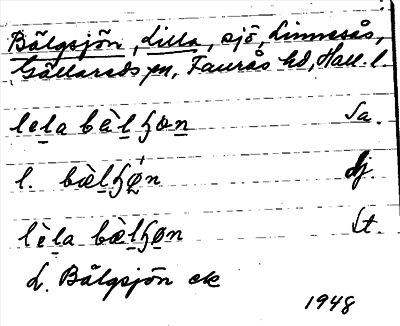 Bälgsjön, Lilla, sjö, Linnesås,
Gällareds sn, Faurås hd, Hall. l.
lela bèlʒøn Sa.
l. bæ̀lʒøn dj.
lèla bæ̀lʒøn St.
L. Bälgsjön ek
1948